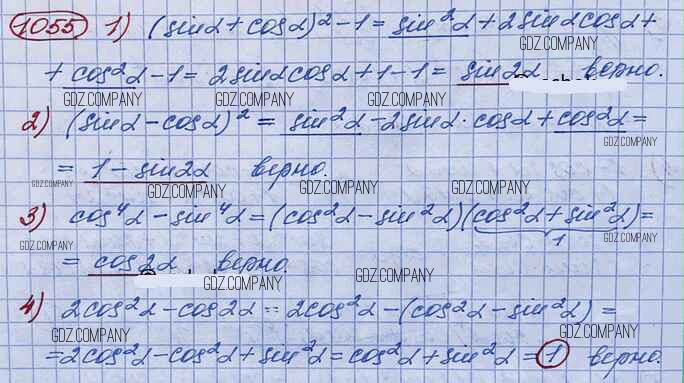 1055 1) (sinα + cosα)² - 1 = sin²α + 2sinαcosα +
GDZ.COMPANY
+ cos²α - 1 = 2sinαcosα + 1 - 1 = sin2α верно.
GDZ.COMPANY GDZ.COMPANY GDZ.COMPANY
2) (sinα - cosα)² = sin²α - 2sinα·cosα + cos²α =
GDZ.COMPANY
= 1 - sin2α верно.
GDZ.COMPANY GDZ.COMPANY GDZ.COMPANY GDZ.COMPANY
3) cos⁴α - sin⁴α = (cos²α - sin²α)(cos²α + sin²α) =
1
GDZ.COMPANY GDZ.COMPANY
= cos2α верно.
GDZ.COMPANY GDZ.COMPANY
4) 2cos²α - cos2α = 2cos²α - (cos²α - sin²α) =
GDZ.COMPANY GDZ.COMPANY
= 2cos²α - cos²α + sin²α = cos²α + sin²α = 1 верно.